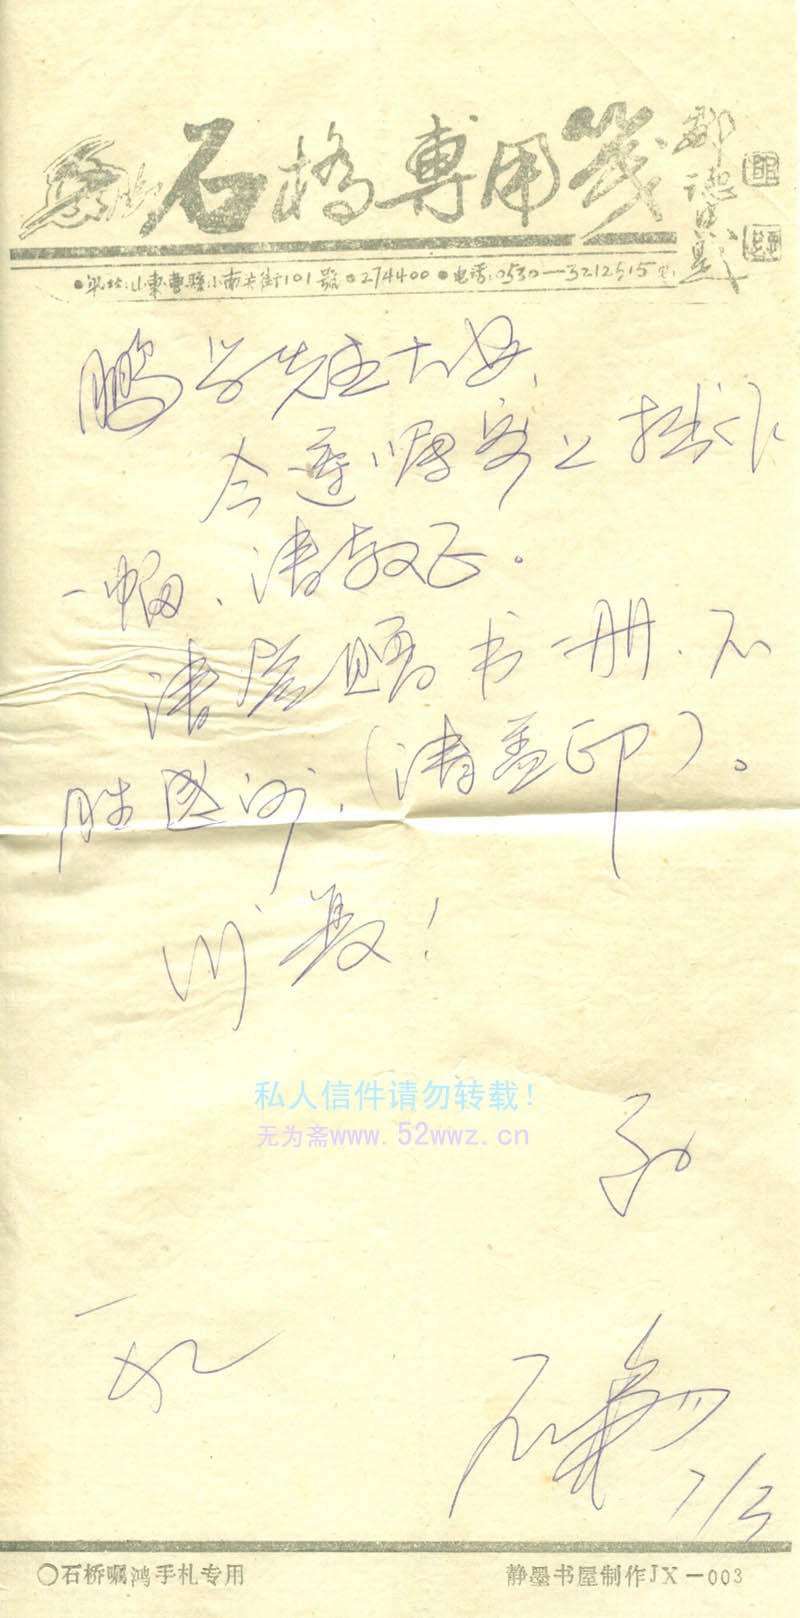 石橋專用箋
●地址:山東曹縣小南关街101號●274400●电话:0530—3212515
鹏学先生大安、
今遵嘱寄上拙作
一幅、请教正。
请惠赐书一册、不
胜感谢、(请盖印)。
私人信件请勿转载!
无为斋www.52wwz.cn
孙
石
7/3
○石桥嘱鸿手札专用
静墨书屋制作JX－003